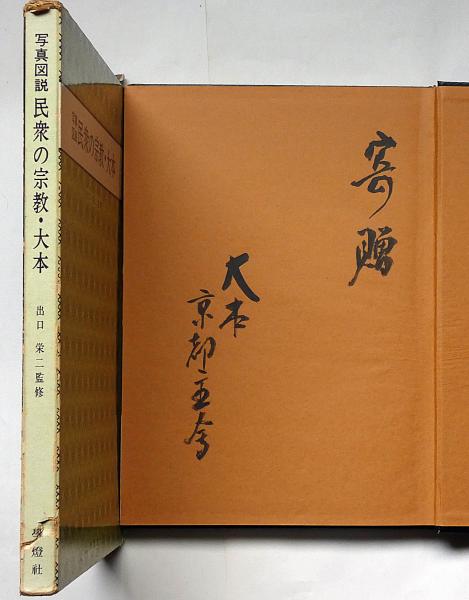 写真図説 民衆の宗教・大本
出口 栄二監修
學燈社
写真図説 民衆の宗教・大本
寄贈
大本
京都主会